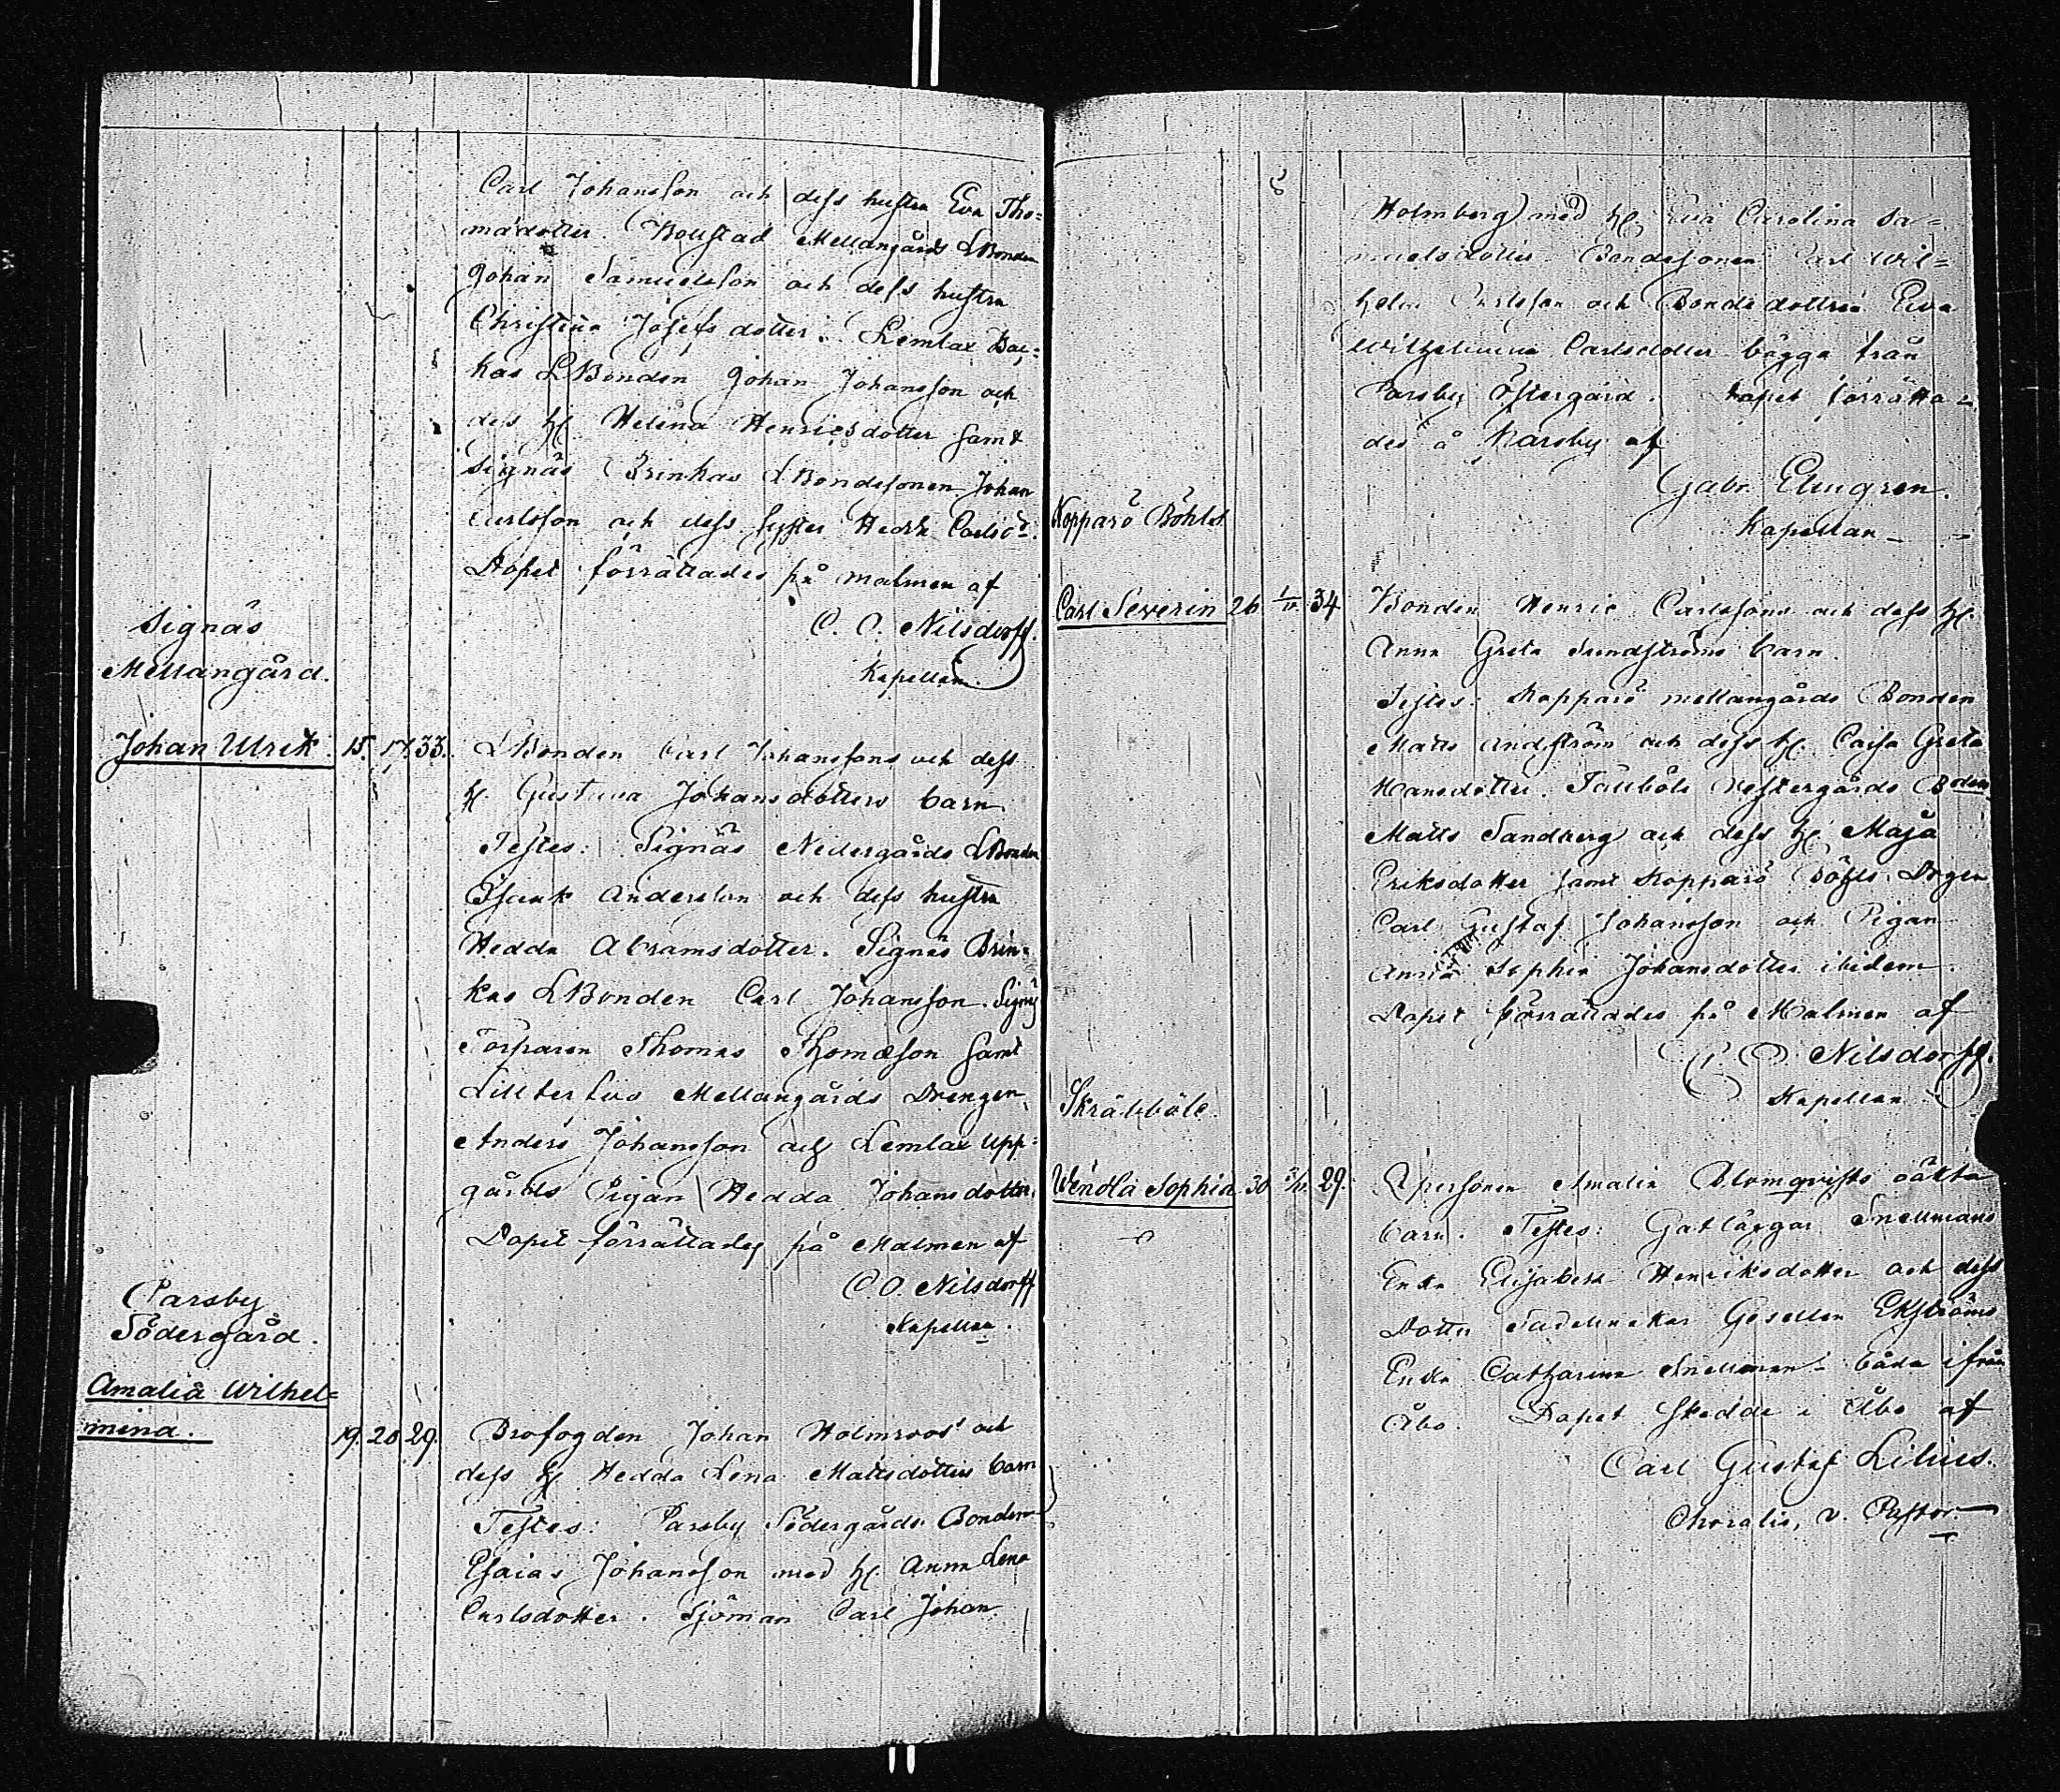 Carl Johansson och dess hustru Eva Tho=
mädotter. Mellangårds LBonden
Johan Samuelsson och dess hustru
Christina Josefsdotter. Lemlax Bac=
kas LBonden Johan Johansson och
dess h. Helena Henricsdotter samt
Signäs Brinkas LBondesonen Johan
Carlsson och dess syster Hedda Carlsd:r
Dopet förrättades på malmen af
C. O. Nilsdorff.
Kapellan.
Signäs
Mellangård.
Johan Ulrik. 15. 17. 33. LBonden Carl Johanssons och dess
h. Gustava Johansdotters barn.
Testes: Signäs Nedergårds LBonden
Isaak Andersson och dess hustru
Hedda Abramsdotter. Signäs Brin=
kas LBonden Carl Johansson. Signäs
Torparen Thomas Thomæson samt
Mellangårds Drengen
Anders Johansson och Lemlax Upp=
gårds Pigan Hedda Johansdotter.
Dopet förrättades på Malmen af
C. O. Nilsdorff
Kapellan.
Parsby
Södergård.
Amalia Wilhel=
mina. 19. 20. 29. Brofogden Johan Holmroos' och
dess h. Hedda Lena Mattsdotters barn
Testes: Parsby Södergårds Bonden
Esaias Johansson med h. Anna Lena
Carlsdotter. Sjöman Carl Johan
Holmberg med h. Eva Carolina Sa=
muelsdotter. Bondesonen Carl Wil=
helm Carlsson och Bondedottren Eva
Wilhelmina Carlsdotter bägge från
Parsby Östergård. Dopet förrätta=
des å Parsby af
Gabr. Elmgren.
Kapellan
Kopparö Böhls
Carl Severin 26. 1/11. 34 Bonden Henric Carlssons och dess h.
Anna Greta Sundströms barn.
Testes: Kopparö mellangårds Bonden
Matts Andström och dess h. Caisa Greta
Hansdotter. Vestergårds Bonden
Matts Sandberg och dess h. Maja
Eriksdotter samt Kopparö Böhls Drgen
Carl Gustaf Johansson och Pigan
Anna Sophia Johansdotter ibidem.
Dopet förrättades på Malmen af
C. O. Nilsdorff.
Kapellan.
Skräbböle.
Wendla Sophia 30 3/11. 29. Qpersonen Amalia Blomqvists oäkta
barn. Testes: Gatläggar Snellmans
Enka Elisabeth Henriksdotter och dess
Dotter Sadelmakar Gesellen Ekströms
Enka Catharina Snellman båda ifrån
Åbo. Dopet skedde i Åbo af
Carl Gustaf Lilius.
Choralis, v. Pastor.